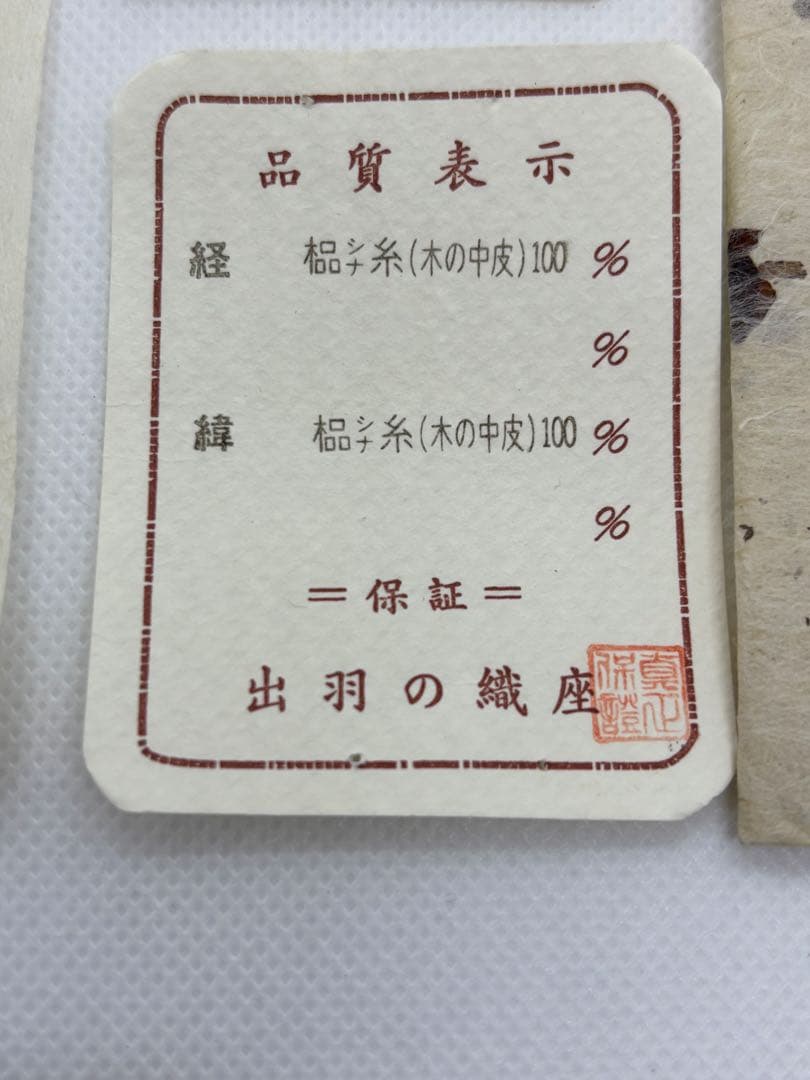 品質表示
経 榀シナ糸(木の中皮)100 %
%
緯 榀シナ糸(木の中皮)100 %
%
=保証=
出羽の織座
真正
保證